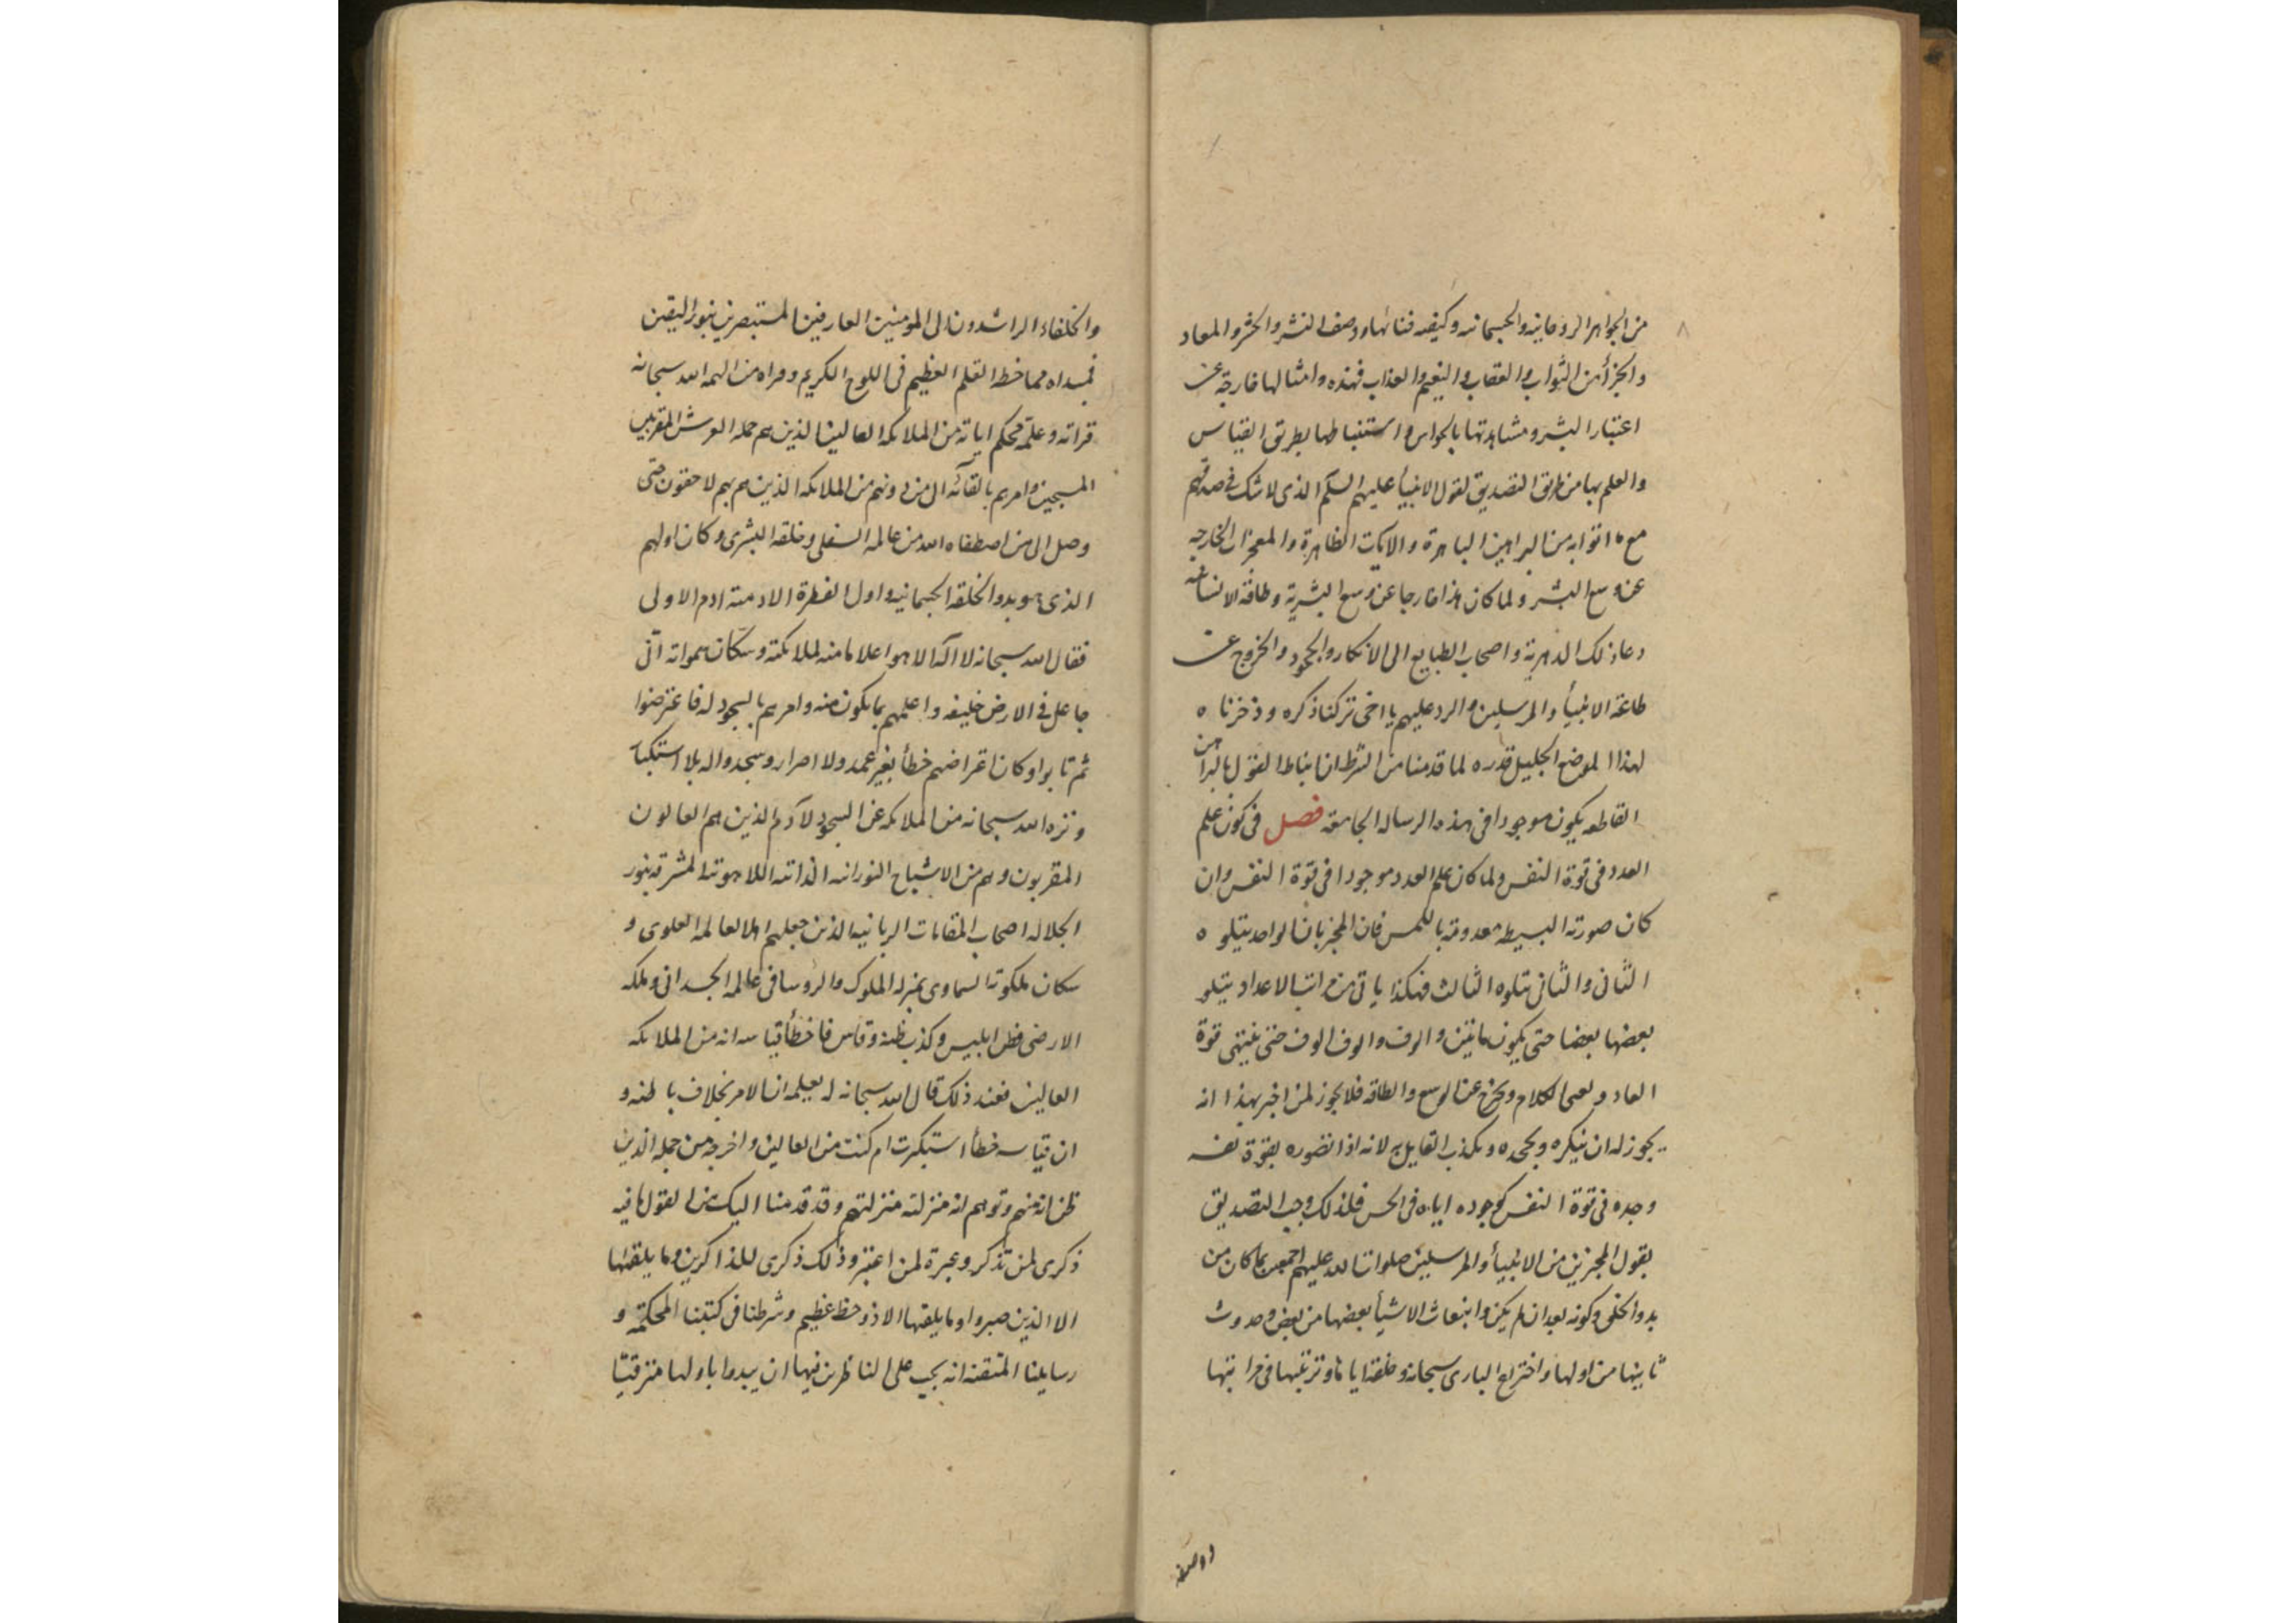 من الجواهر الروحانيه والجسمانيه وكيفيه فنائها ووصف النشر والحشر والمعاد
والجزأ من الثواب والعقاب والنعيم والعذاب فهذه وامثالها خارجة عن
اعتبار البشر ومشاهدتها بالحواس واستنباطها بطريق القياس
والعلم بها من طريق التصديق لقول الانبيأ عليهم السلم الذى لا شك فى صدقهم
مع ما اتوا به من البراهين الباهرة والايات الظاهرة والمعجزات الخارجه
عن وسع البشر ولما كان هذا خارجا عن وسع البشرية وطاقة الانسانيه
دعا ذلك الدهرية واصحاب الطبايع الى الانكار والجحود والخروج عن
طاعة الانبيأ والمرسلين والرد عليهم يا اخى تركنا ذكره وذخرناه
لهذا الموضع الجليل قدره لما قدمنا من الشرط ان نياط القول بالبراهين
القاطعه يكون موجودا فى هذه الرساله الجامعه فصل فى كون علم
العدد فى قوة النفس ولما كان علم العدد موجودا فى قوة النفس وان
كان صورته البسيطه معدومة باللمس فان المخبر بان الواحد يتلوه
الثانى والثانى يتلوه الثالث فهكذا ياتى من مراتب الاعداد يتلو
بعضها بعضا حتى يكون مايتين والوف والوف الوف حتى ينتهى قوة
العاد ويعمى الكلام ويخرج عن الوسع والطاقه فلا يجوز لمن اخبر بهذا انه
يجوز له ان ينكره ويجحده ويكذب القايل به لانه اذا تصوره بقوة نفسه
وجده فى قوة النفس كوجوده اياه فى الحس فلذلك وجب التصديق
بقول المخبرين من الانبيأ والمرسلين صلوات الله عليهم اجمعين بما كان من
بدو الخلق وكونه بعد ان لم يكن وانبعاث الاشيأ بعضها من بعض وحدوث
ثانيها من اولها واختراع البارى سبحانه وخلقه اياها وترتيبها فى مراتبها
والخلفاء الراشدون الى المومنين العارفين المستبصرين بنور اليقين
فمبداه مما خطه القلم العظيم فى اللوح الكريم وقراه من الهمه الله سبحانه
قراته وعلمه محكم اياته من الملايكه العالين الذين هم حمله العرش المقربين
المسبحين وامرهم بالقائه الى من دونهم من الملايكه الذين هم بهم لاحقون حتى
وصل الى من اصطفاه الله من عالمه السفلى وخلقه البشرى وكان اولهم
الذى هو بدو الخلقه الجسمانيه واول الفطرة الادميته ادم الاولى
فقال الله سبحانه لا اله الا هو اعلاما منه لملايكته وسكان سمواته انى
جاعل فى الارض خليفه واعلمهم بما يكون منه وامرهم بالسجود له فاعترضوا
ثم تابوا وكان اعتراضهم خطأ بغير عمد ولا اصرار وسجدوا له بلا استكبار
ونزه الله سبحانه من الملايكه عن السجود لآدم الذين هم العالون
المقربون وهم من الاشباح النورانيه الذاتيه اللاهوتيه المشرقه بنور
الجلاله اصحاب المقامات الربانيه الذين جعلهم اهلا لعالمه العلوى و
سكان ملكوته السماوى بمنزله الملوك والروسا فى عالمه الجسدانى وملكه
الارضى فظن ابليس وكذب ظنه وقاس فاخطأ قياسه انه من الملايكه
العالين فعند ذلك قال الله سبحانه له ليعلمه ان الامر بخلاف ما ظنه و
ان قياسه خطأ استكبرت ام كنت من العالين واخرجه من جمله الذين
ظن انه منهم وتوهم ان منزلته منزلتهم وقد قدمنا اليك من القول ما فيه
ذكرى لمن تذكر وعبرة لمن اعتبر وذلك ذكرى للذاكرين وما يلقيها
الا الذين صبروا وما يلقيها الا ذو حظ عظيم وشرطنا فى كتبنا المحكمة و
رسايلنا المتقنه انه يجب على الناظرين فيها ان يبدوا باولها مترقيا